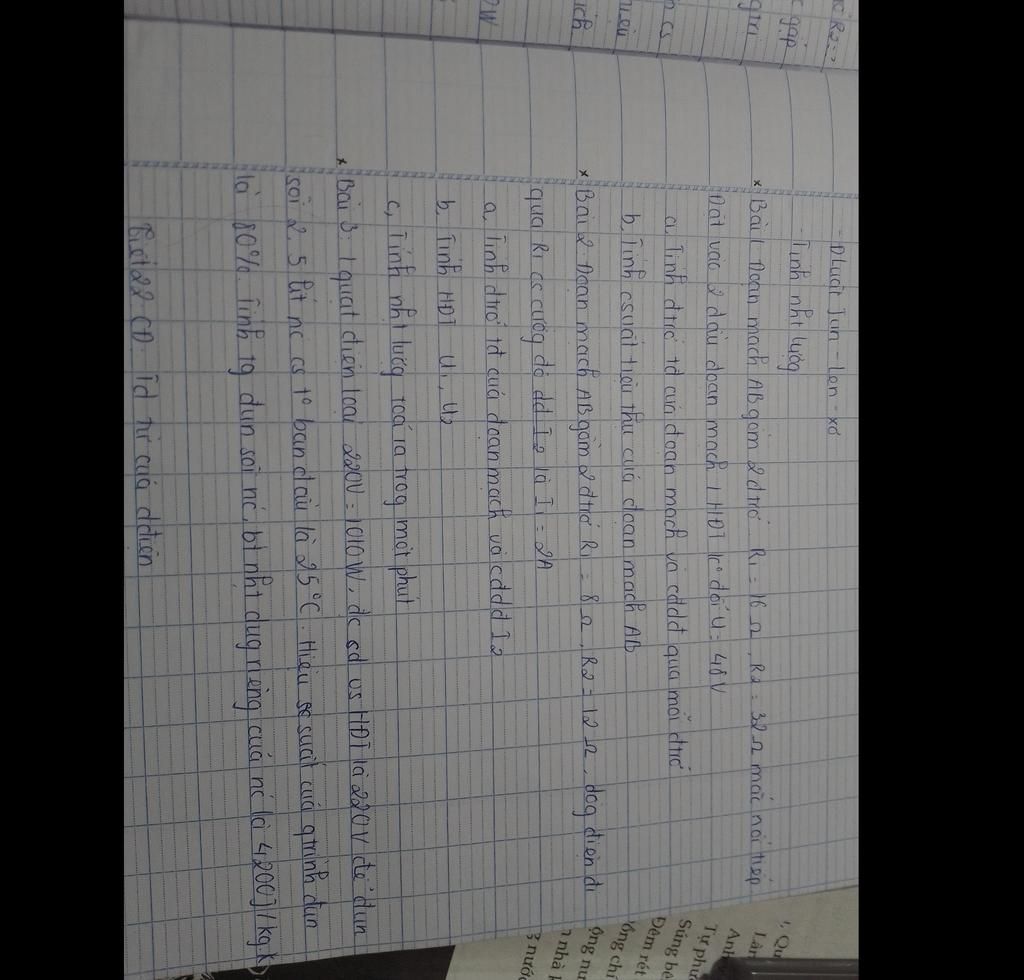 - Đluật Jun - Len-xơ
- Tính nhtlượg
x Bài 1 Đoạn mạch AB gồm 2 đtrở R1 = 16 Ω, R2 = 32 Ω mắc nối tiếp
Đặt vào 2 đầu đoạn mạch 1 HĐT k° đổi U = 48V
a, Tính đtrở tđ của đoạn mạch và cđdđ qua mỗi đtrở
b, Tính csuất tiêu thụ của đoạn mạch AB
x Bài 2: Đoạn mạch AB gồm 2 đtrở R1 = 8 Ω, R2 = 12 Ω, dòg điện đi
qua R1 có cườg độ dđ I2 là I1 = 2A
a, Tính đtrở tđ của đoạn mạch và cđdđ I2
b, Tính HĐT U1, U2
c, Tính nhtlượg toả ra trog một phút
x Bài 3: 1 quạt điện loại 220V - 1010W, đc sd vs HĐT là 220V để đun
sôi 2,5 lít nc cs t° ban đầu là 25°C. Hiệu suất của qtrình đun
là 80%. Tính tg đun sôi nc, bt nht dug riêng của nc là 4200J/kg.K
Tiết 22 CĐ: Td từ của dđiện
R2 =>
gặp
gtrị
cs
W
Đêm rét
Súng
3 nước